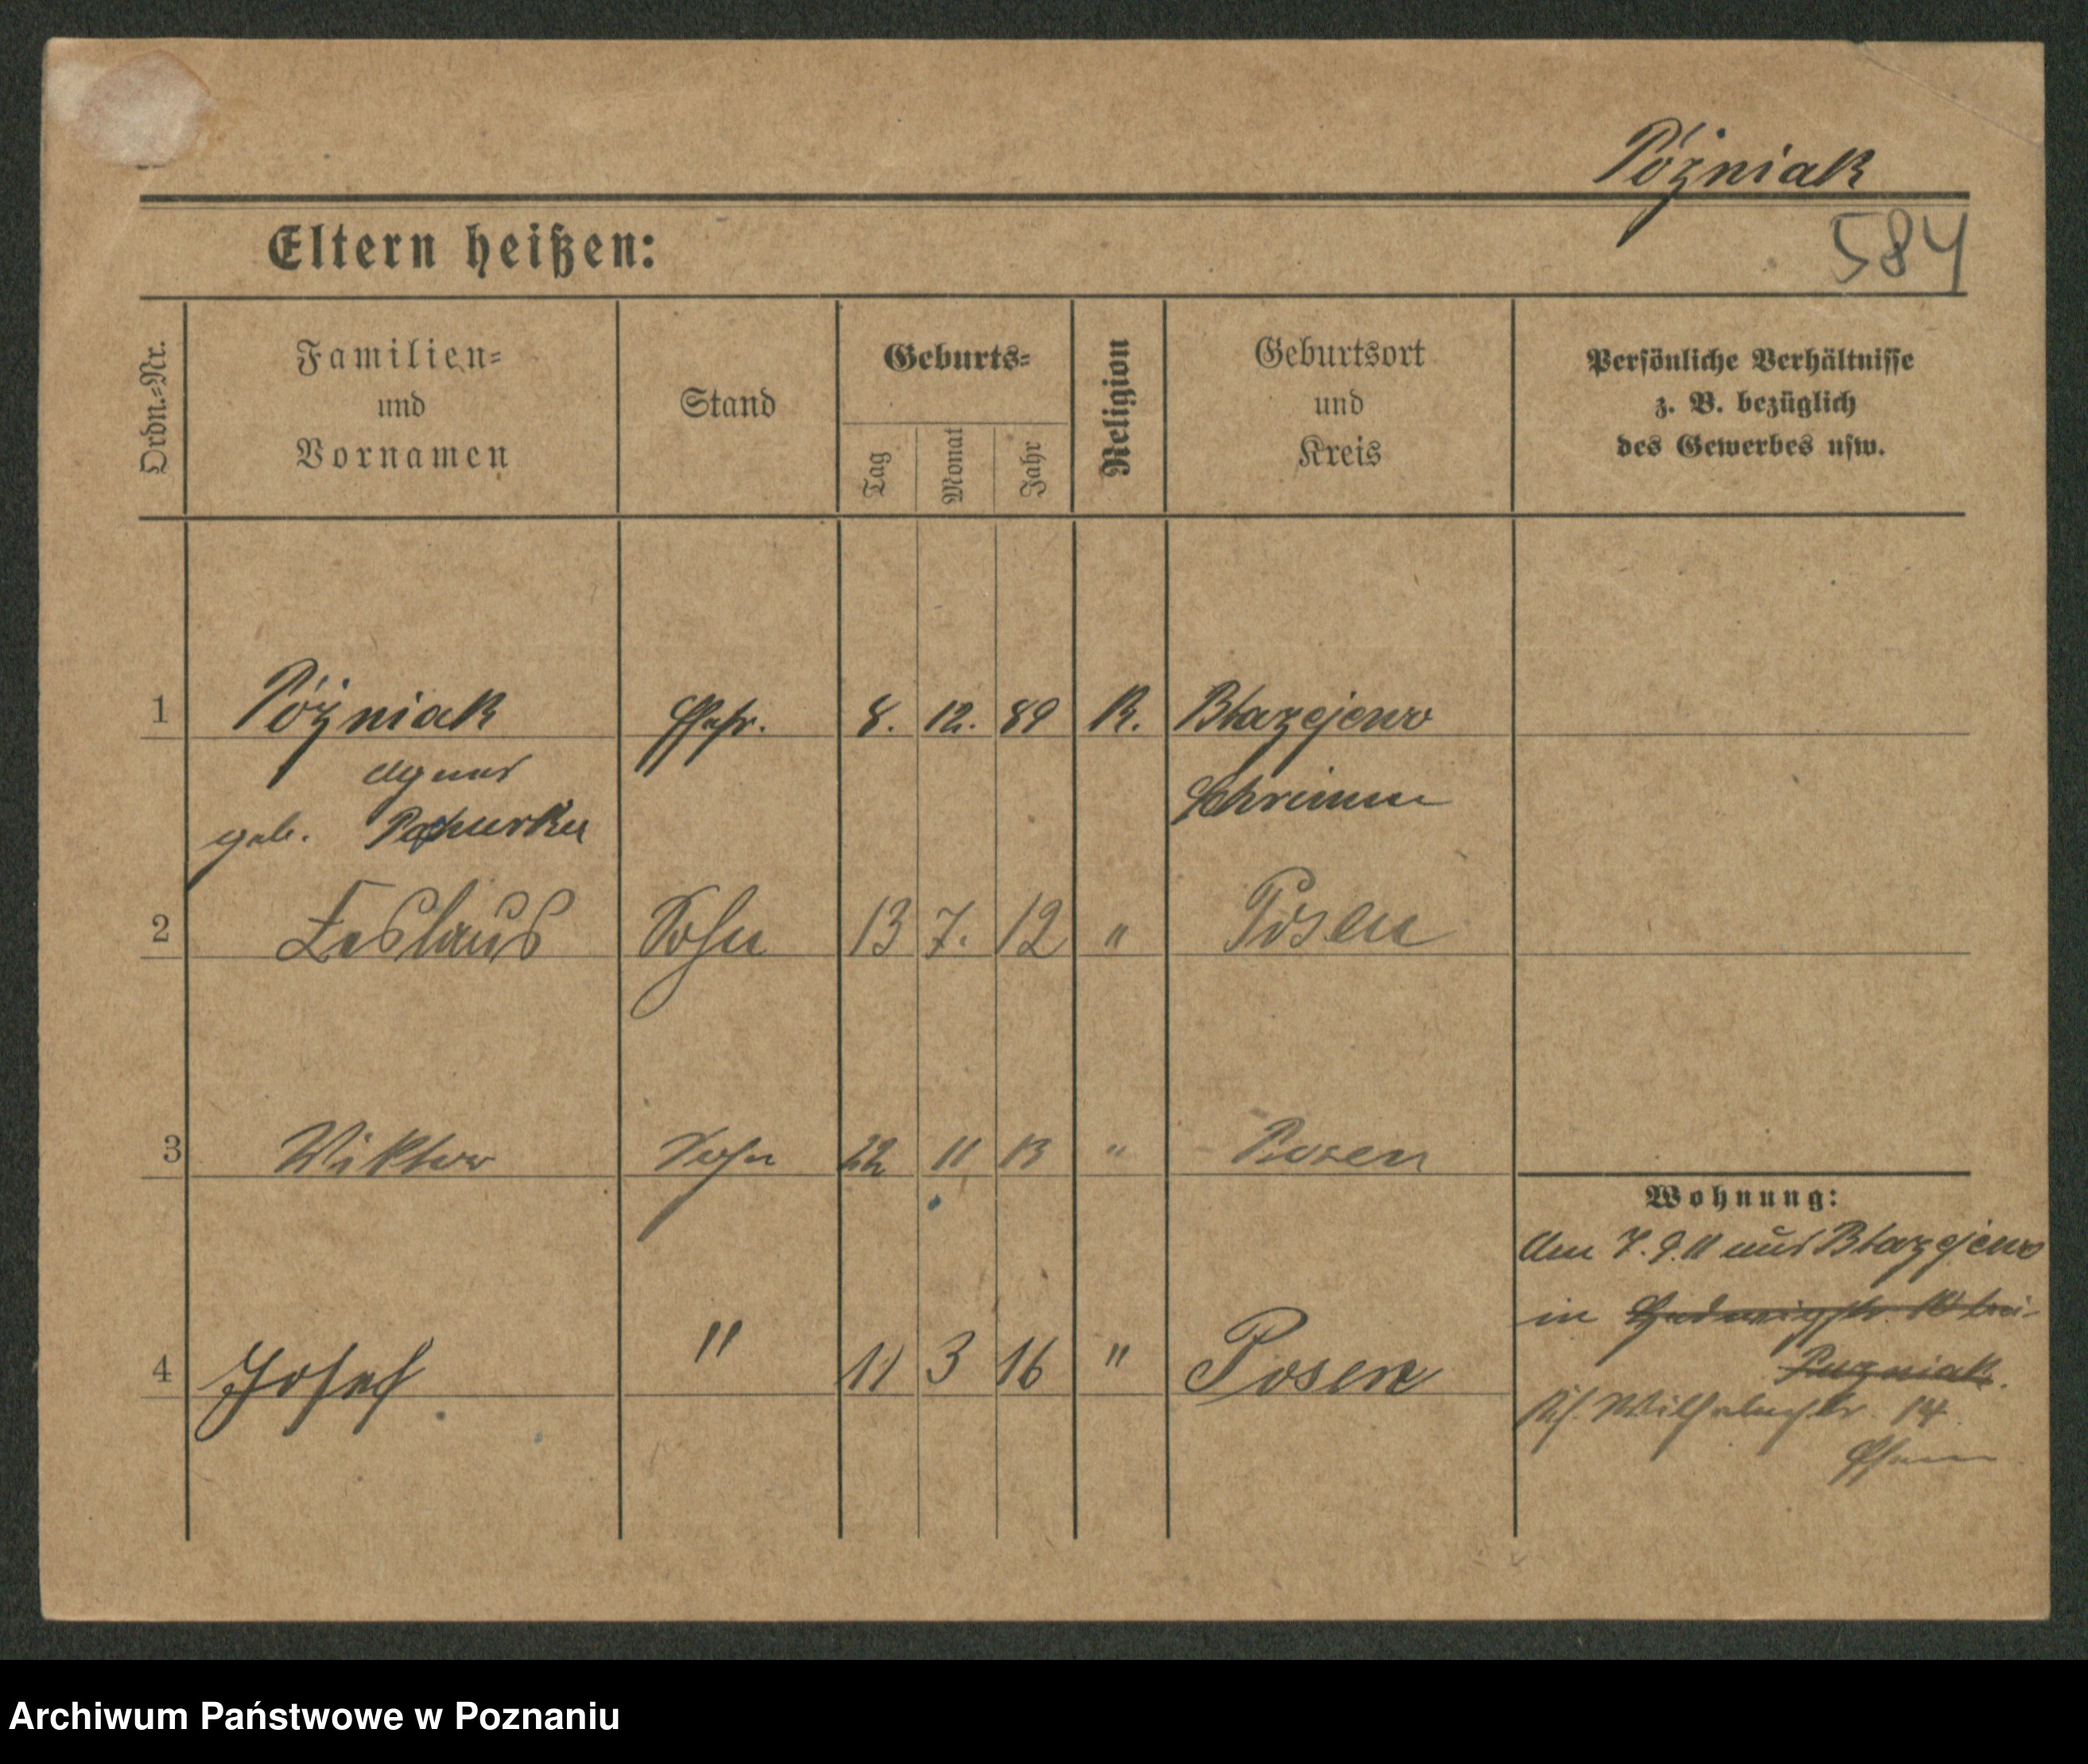 Póżniak
584
Eltern heißen:
Ordn.-Nr.
Familien-
und
Vornamen
Stand
Geburts-
Tag
Monat
Jahr
Religion
Geburtsort
und
Kreis
Persönliche Verhältnisse
z. B. bezüglich
des Gewerbes usw.
1 Póżniak Ehefr. 8. 12. 89 K. Błażejewo
Agnes Schrimm
geb.
2 Zeslaus Sohn 13 7. 12 " Posen
3 Viktor Sohn 22 11 13 " Posen
Wohnung:
Am 7.9.11 aus Błażejewo
in
4 Josef " 11 3 16 " Posen
Wilhelmstr. 14
Archiwum Państwowe w Poznaniu